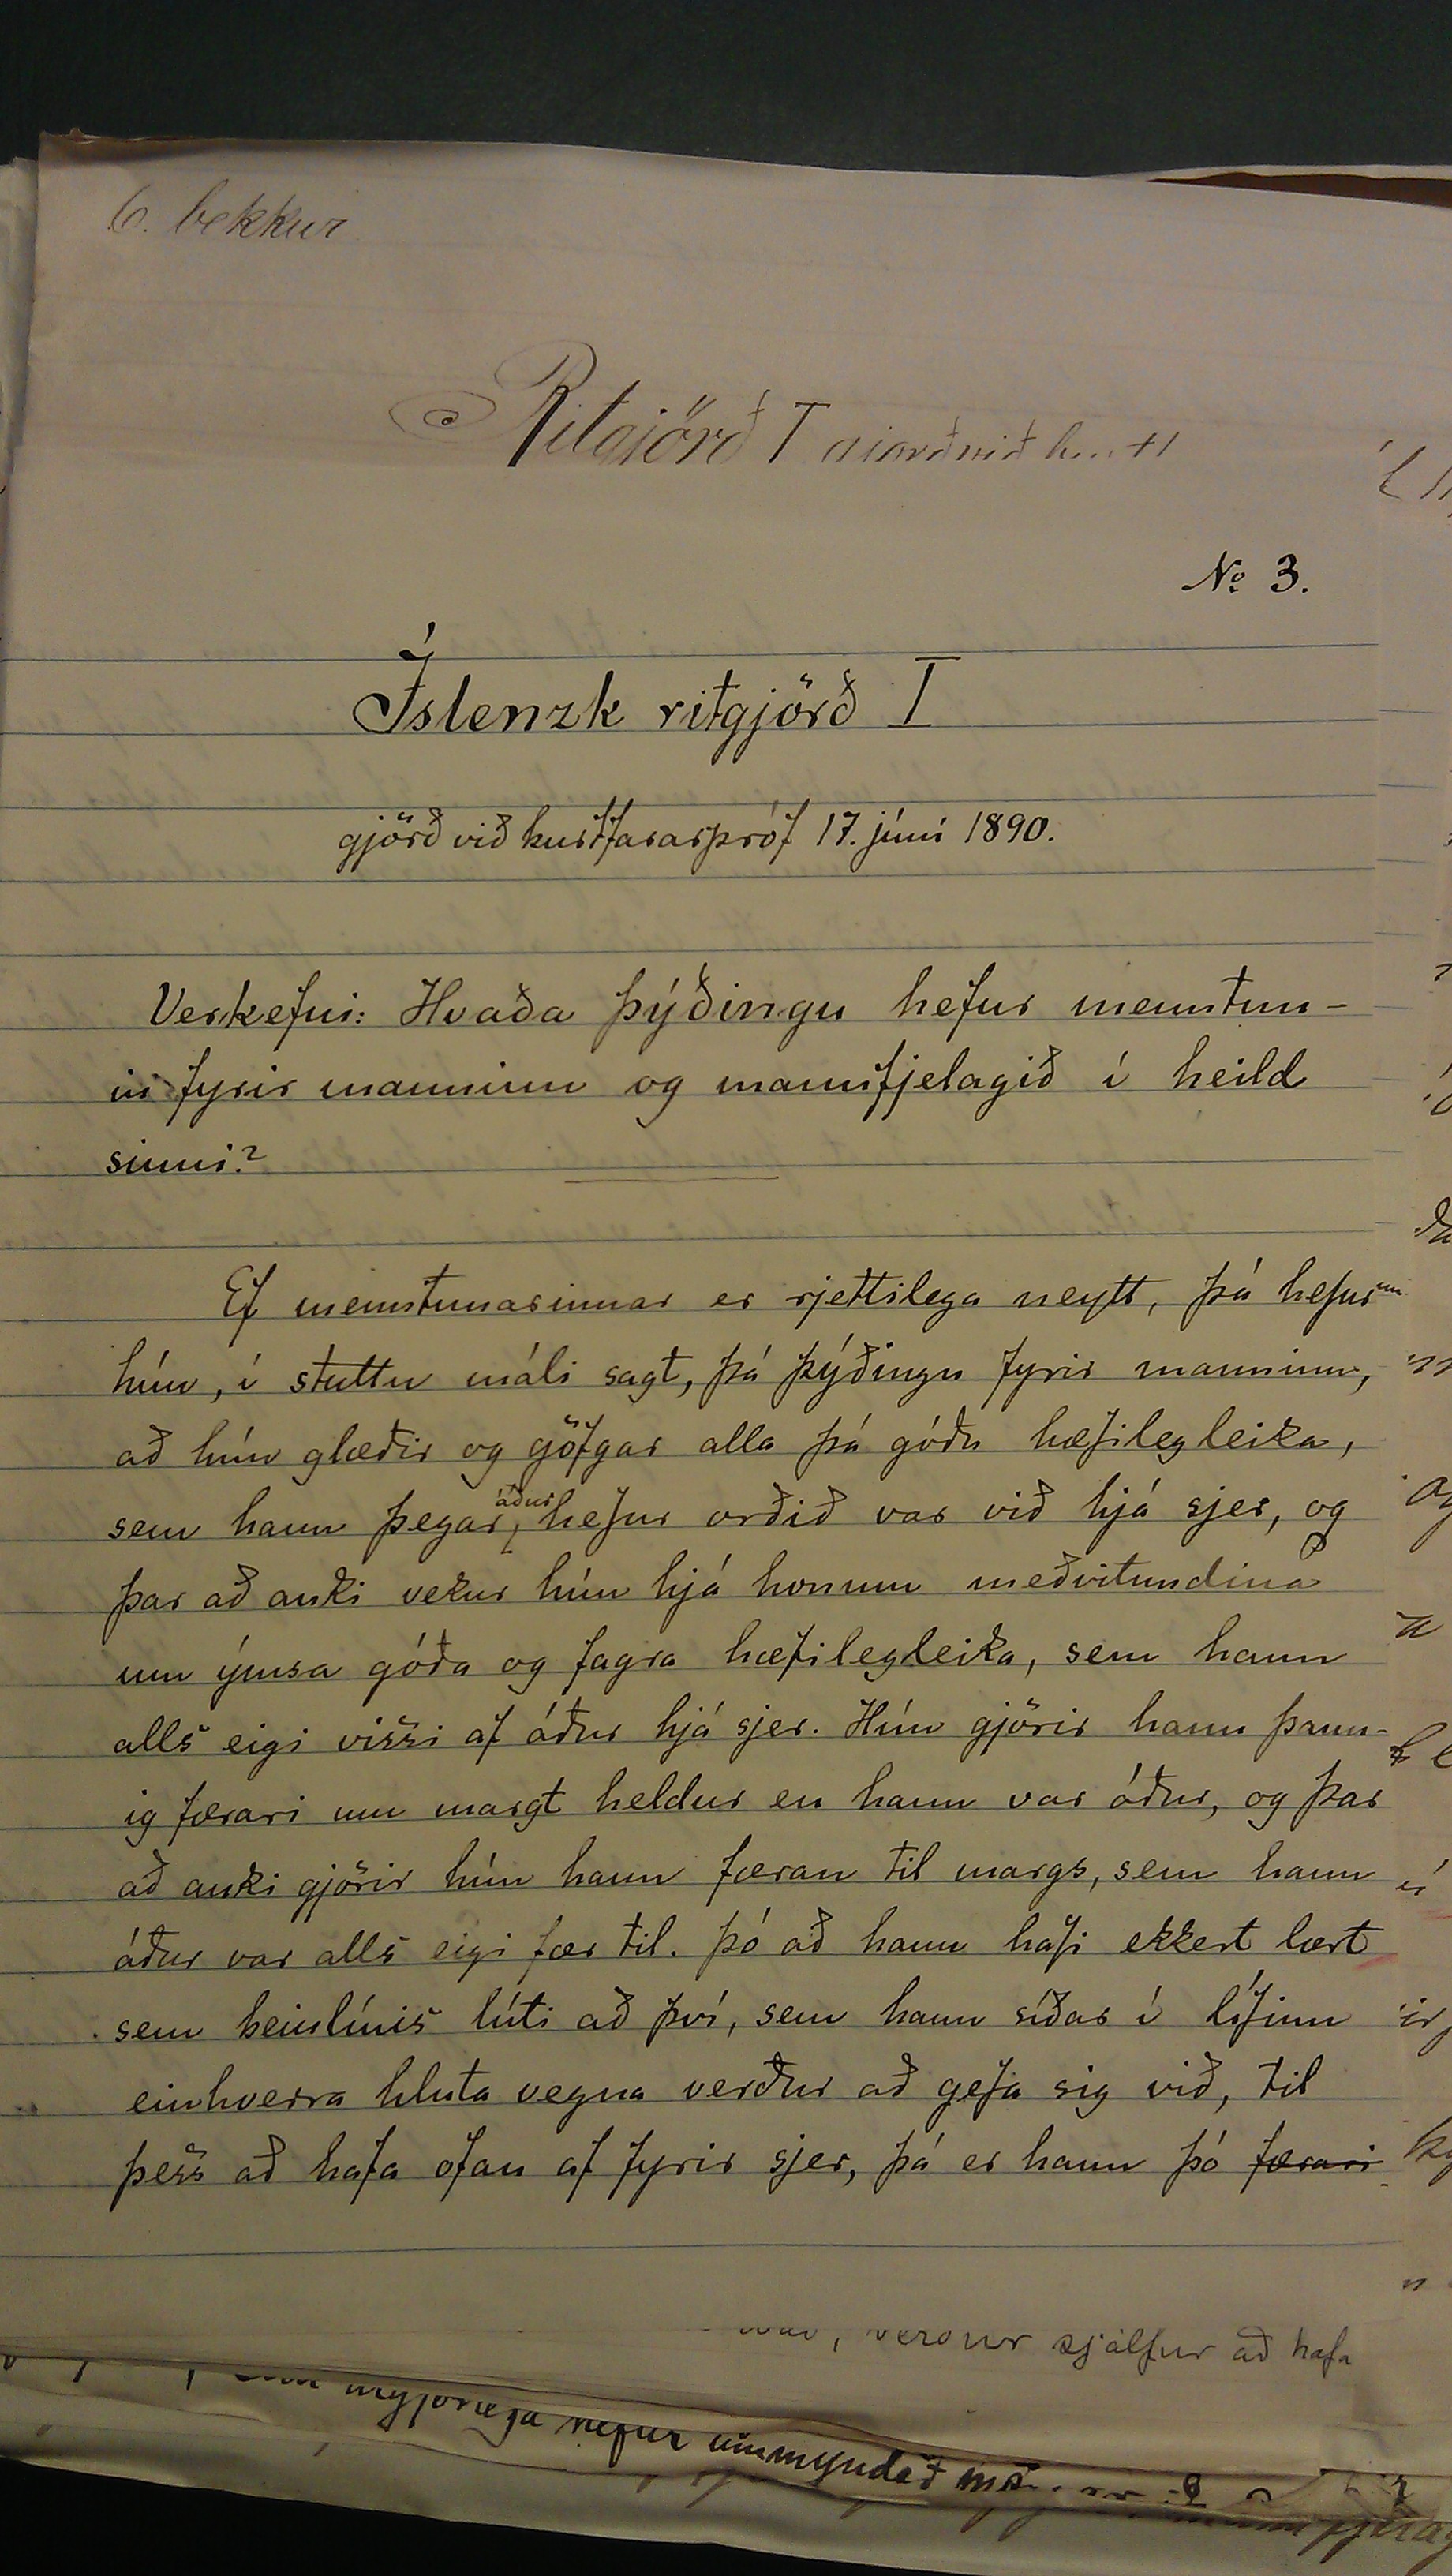 6. bekkur
Ritgjörð I
№ 3.
Íslenzk ritgjörð I
gjörð við burtfararpróf 17. júní 1890.
Verkefni: Hvaða þýðingu hefur menntun-
in fyrir manninn og mannfjelagið í heild
sinni?
Ef menntunarinnar er rjettilega neytt, þá hefur
hún, í stuttu máli sagt, þá þýðingu fyrir manninn,
að hún glæðir og göfgar alla þá góðu hæfilegleika,
sem hann þegar áður hefur orðið var við hjá sjer, og
þar að auki vekur hún hjá honum meðvitundina
um ýmsa góða og fagra hæfilegleika, sem hann
alls eigi vissi af áður hjá sjer. Hún gjörir hann þann-
ig færari um margt heldur en hann var áður, og þar
að auki gjörir hún hann færan til margs, sem hann
áður var alls eigi fær til. Þó að hann hafi ekkert lært
sem beinlínis lúti að því, sem hann síðar í lífinu
einhverra hluta vegna verður að gefa sig við, til
þess að hafa ofan af fyrir sjer, þá er hann þó færari
verður sjálfur að hafa
hefur ummyndað